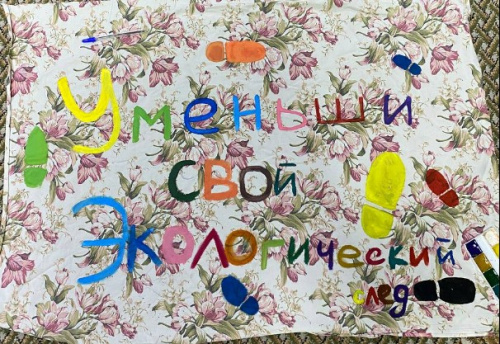 Уменьши
свой
Экологический
след